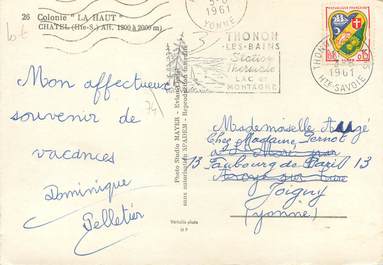 26 Colonie "LA HAUT"
CHATEL (Hte-S.) Alt. 1200 à 2000 m)
bt
1961
YONNE
THONON
LES-BAINS
Station
Thermale
LAC et
MONTAGNE
THONON
1961
HTE-SAVOIE
0,15
Mon affectueux
souvenir de
vacances
Dominique
Pelletier
Photo Studio MAYER - Evian
sans autorisation SPADEM - Reproduction interdite
Véritable photo
Mademoiselle
Chez Madame Pernot
13 Faubourg de Paris 13
Joigny
(Yonne)